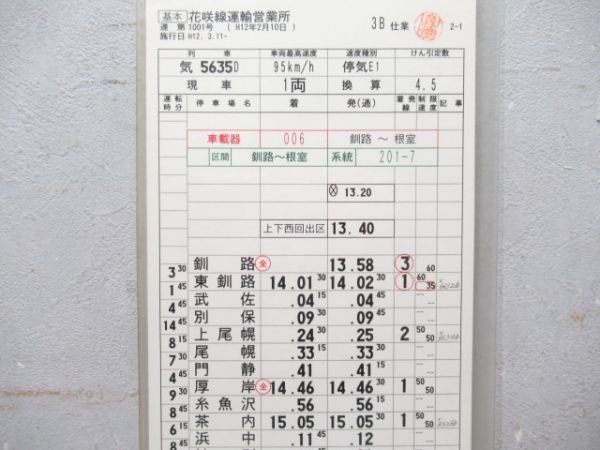 基本 花咲線運輸営業所
運 第 1001号 ( H12年2月10日 ) 3B 仕業 2-1
施行日 H12. 3.11-
列 車 車両最高速度 速度種別 けん引定数
気 5635D 95km/h 停気E1
現 車 1両 換 算 4.5
運転時分 停 車 場 名 着 発(通) 着発線 制限速度 記 事
車載器 006 釧路 ～ 根室
区間 釧路～根室 系統 201-7
13.20
上下西回出区 13.40
釧 路 全 13.58 3 60
3 30 東 釧 路 14.01 30 14.02 30 1 60 35
1 45 武 佐 .04 15 .04 45
4 45 別 保 .09 30 .09 30
14 45 上 尾 幌 .24 30 .25 2 50 50
8 15 尾 幌 .33 15 .33 30
7 30 門 静 .41 .41
4 45 厚 岸 全 14.46 14.46 30 1 50 50
9 30 糸 魚 沢 .56 .56
8 45 茶 内 15.05 15.05 30 1 50 50
6 浜 中 .11 45 .12